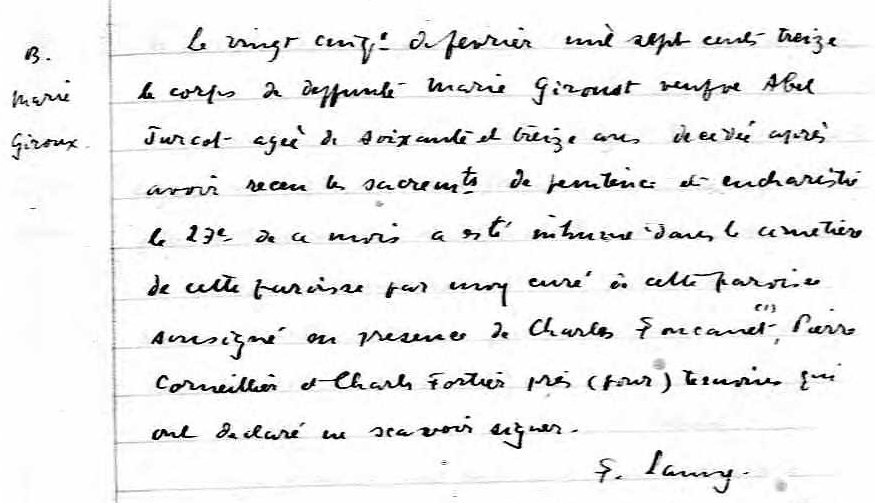 B.
Marie
Giroux.
Le vingt cinqe de fevrier mil sept cents treize
le corps de deffunte Marie Giroust veufve Abel
Turcot agée de soixante et treize ans decedée après
avoir receu les sacremts de penitence et eucharistie
le 23e de ce mois a esté inhumé dans le cimetière
de cette paroisse par moy curé de cette paroisse
sousigné en presence de Charles Foucanet (1), Pierre
Corneillier et Charles Fortier pris (pour) temoins qui
ont declaré ne scavoir signer.
F. Lamy.